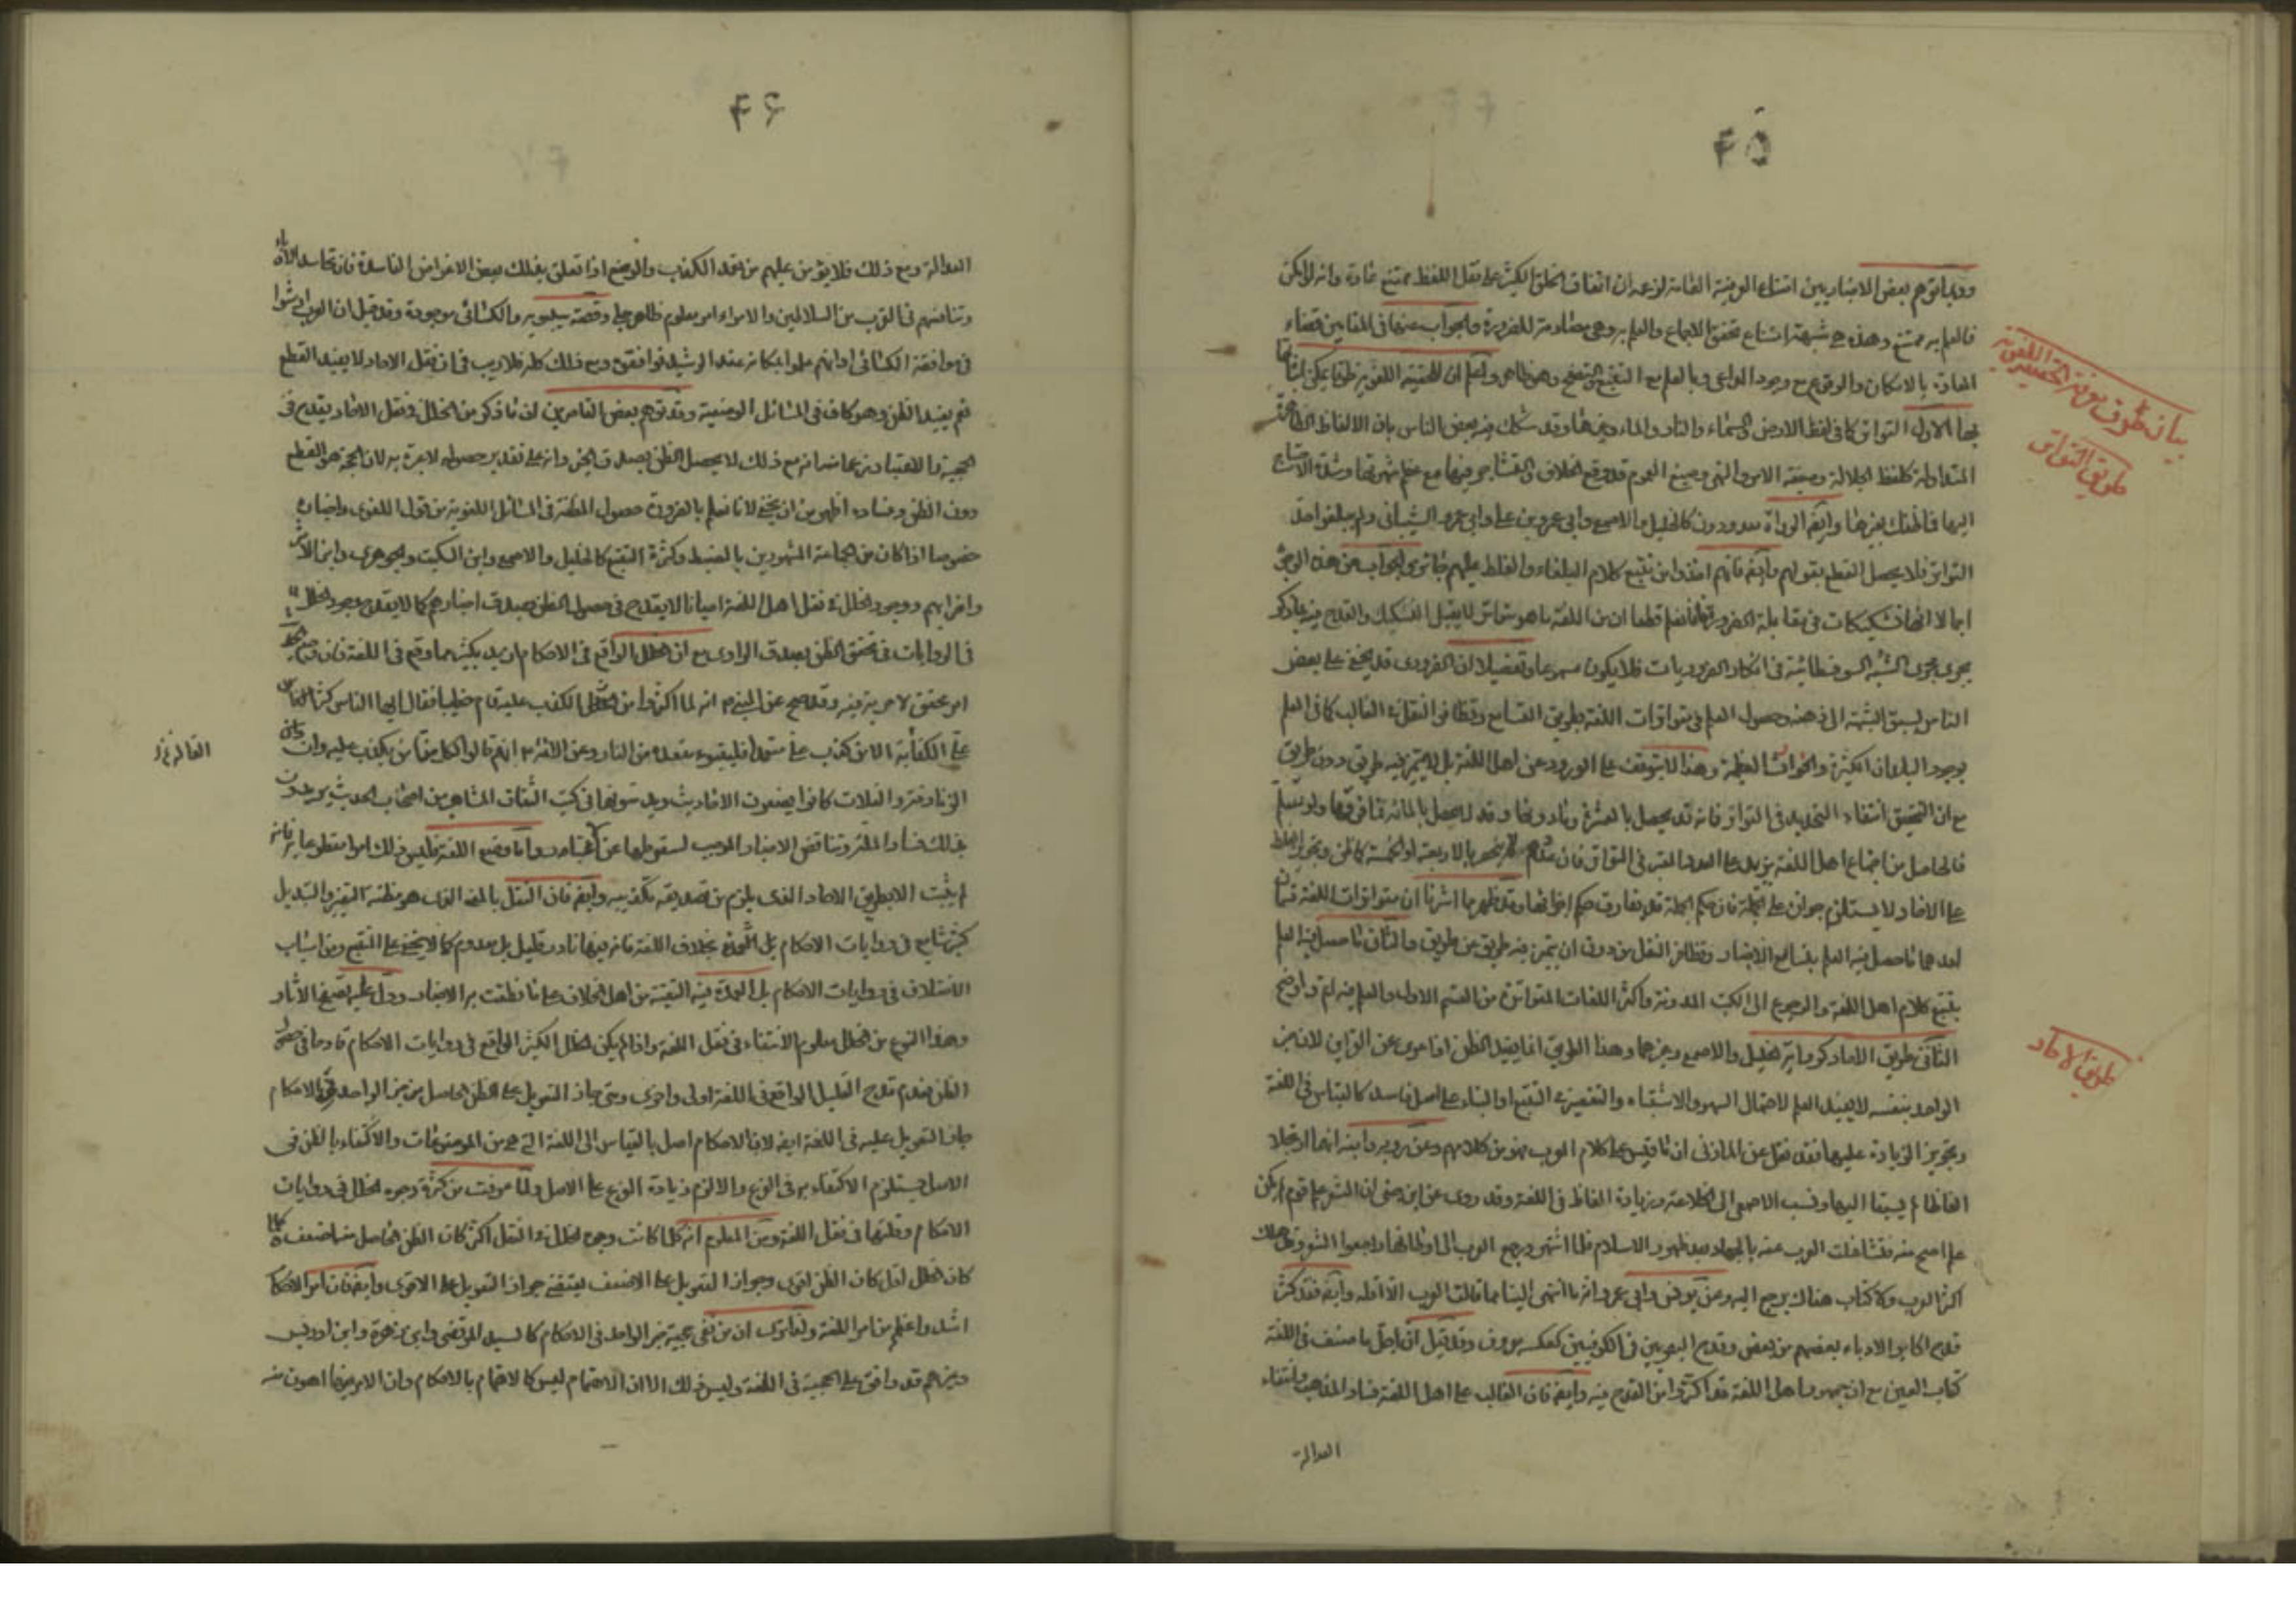 ۴۵
وربما توهم بعض الاخباريين امتناع الوضعية العامة لزعمه ان اتفاق الخلق الكثير على نقل اللفظ ممتنع عادة وانه لو امكن
فالعلم به ممتنع وهذه هي شبهة امتناع تحقق الاجماع والعلم به وهي مصادمة للضرورة والجواب عنها في المقامين قضاء
العادة بالامكان والوقوع مع وجود الداعي وبالعلم مع التتبع والتصفح وهو ظاهر واعلم ان للحقيقة اللغوية طرقا يمكن اثباتها
بها الاول التواتر كما في لفظ الارض والسماء والنار والماء وغيرها وقد شكك فيه بعض الناس بان الالفاظ
المتداولة كلفظ الجلالة وصيغة الامر والنهي وصيغ العموم قد وقع الخلاف والتشاجر فيها مع عظم شهرتها وشدة الاحتياج
اليها فما ظنك بغيرها وايضا الرواة معدودون كالخليل والاصمعي وابي عمرو بن علا وابي عمرو الشيباني ولم يبلغوا حد
التواتر فلا يحصل القطع بقولهم وايضا فانهم اخذوا من تتبع كلام البلغاء والغلط عليهم جائز والجواب عن هذه الوجوه
اجمالا انها تشكيكات في مقابلة الضرورة فانا نعلم قطعا ان من اللغة ما هو متواتر لا يقبل التشكيك والقدح فيه بما ذكر
يجري مجرى الشبه السوفسطائية في انكار الضروريات فلا يكون مسموعا وتفصيلا ان الضروري قد يخفى على بعض
الناس لسبق الشبهة الى ذهنه وحصول العلم في متواترات اللغة بطريق التسامع وتظافر النقل في الغالب كما في العلم
بوجود البلدان الكثيرة والحوادث العظيمة وهذا لا يتوقف على الورود عن اهل اللغة بل لا يتميز فيه طريق دون طريق
مع ان التحقيق انتفاء التحديد في التواتر فانه قد يحصل بالعشرة وما دونها وقد لا يحصل بالمائة فما فوقها ولو سلم
فالحاصل من اجتماع اهل اللغة يزيد على العدد المعتبر في التواتر فان عددهم لا ينحصر بالاربعة او الخمسة كما ظن وتجويز الغلط
على الاحاد لا يستلزم جوازه على الجملة فان حكم الجملة قد يفارق حكم اجزائها وقد ظهر بما اشرنا ان متواترات اللغة قسمان
احدهما ما حصل فيه العلم بتسامع الاخبار وتظافر النقل من دون ان يتميز فيه طريق من طريق والثاني ما حصل فيه العلم
بتتبع كلام اهل اللغة والرجوع الى الكتب المدونة واكثر اللغات المتواترة من القسم الاول والعلم فيه اتم واوضح
الثاني طريق الاحاد كرواية الخليل والاصمعي وغيرهما وهذا الطريق انما يفيد الظن اذا عرى عن القراين لان خبر
الواحد بنفسه لا يفيد العلم لاحتمال السهو والاشتباه والتقصير في التتبع او البناء على اصل فاسد كالقياس في اللغة
وتجويز الزيادة عليها فقد نقل عن المازني ان ما قيس على كلام العرب فهو من كلامهم وعن روبة وابيه انهما ارتجلا
الفاظا لم يسبقا اليها ونسب الاصمعي الى الخلاعة وزيادة الفاظ في اللغة وقد روى عن ابن جني ان الشعر علم قوم لم يكن
علم اصح منه فتشاغلت العرب عنه بالجهاد بعد ظهور الاسلام فلما اشتهر ورجع العرب الى اوطانها راجعوا الشعر وقد هلك
اكثر العرب ولا كتاب هناك يرجع اليه وعن يونس وابي عمرو انه ما انتهى الينا مما قالت العرب الا اقله وايضا فقد كثر
قدح اكابر الادباء بعضهم من بعض وقدح البصريين في الكوفيين كعكسه معروف وقد قيل ان اجل ما صنف في اللغة
كتاب العين مع ان جمهور اهل اللغة قد اكثروا من القدح فيه وايضا فان الغالب على اهل اللغة فساد المذهب وانتفاء
العدالة
بيان طرق معرفة الحقيقة اللغوية
طريق التواتر
طريق الاحاد
۴۶
العدالة ومع ذلك فلا يؤمن عليهم من تعمد الكذب والوضع اذا تعلق بذلك بعض الاغراض الفاسدة فان تحاسد الادباء
وتنافسهم في القرب من السلاطين والامراء امر معلوم ظاهر جلي وقصة سيبويه والكسائي موجودة وقد قيل ان العرب ارشوا
في موافقة الكسائي او انهم علموا بمكانه عند الرشيد فوافقوه ومع ذلك كله فلا ريب في ان نقل الاحاد لا يفيد القطع
نعم يفيد الظن وهو كاف في المسائل الوضعية وقد توهم بعض القاصرين ان ما ذكر من الخلل في نقل الاحاد يقدح في
الحجية والاعتبار زعما منه انه مع ذلك لا يحصل الظن بصدق الخبر وانه على تقدير حصوله لا عبرة به لان الحجة هو القطع
دون الظن وفساده اظهر من ان يخفى لانا نعلم بالضرورة حصول المظنة في المسائل اللغوية من قول اللغوي واخباره
خصوصا اذا كان من الجماعة المشهورين بالضبط وكثرة التتبع كالخليل والاصمعي وابن السكيت والجوهري وابن الاثير
واضرابهم ووجود الخلل في نقل اهل اللغة احيانا لا يقدح في حصول الظن بصدق اخبارهم كما لا يقدح وجود الخلل
في الروايات في تحقق الظن بصدق الراوي مع ان الخلل الواقع في الاحكام ازيد بكثير مما وقع في اللغة فان
امر محقق لا مرية فيه وقد صح عن النبي انه لما اكثروا من الكذب عليه قام خطيبا فقال ايها الناس كثرت
على الكذابة الا من كذب علي متعمدا فليتبوء مقعده من النار وعن الائمة انهم قالوا لكل منا من يكذب عليه وان
الزنادقة والغلاة كانوا يضعون الاحاديث ويدسونها في كتب الثقات المشاهير من اصحاب الحديث يريدون
بذلك فساد الملة وتناقض الاخبار الموجب لسقوطها عن الاعتبار واما وضع اللغة فليس ذلك امرا مقطوعا به فانه
لم يثبت الا بطريق الاحاد الذي يلزم من تصديقه تكذيبه وايضا فان النقل بالمعنى الذي هو مظنة التغيير والتبديل
كثير شايع في روايات الاحكام بخلاف اللغة فانه فيها نادر قليل بل معدوم كما لا يخفى على المتتبع ومن اسباب
الاختلاف في روايات الاحكام بل العمدة فيه التقية من اهل الخلاف على ما نطقت به الاخبار ودل عليه تصفح الاثار
وهذا النوع من الخلل معلوم الانتفاء في نقل اللغة واذا لم يكن الخلل الكثير الواقع في روايات الاحكام قادحا في حصول
الظن فعدم قدح القليل الواقع في اللغة اولى واحرى ومتى جاز التعويل على الظن الحاصل من خبر الواحد في الاحكام
جاز التعويل عليه في اللغة ايضا لان الاحكام اصل بالقياس الى اللغة التي هي من الموضوعات والاكتفاء بالظن في
الاصل يستلزم الاكتفاء به في الفرع والا لزم زيادة الفرع على الاصل ولما عرفت من كثرة وجوه الخلل في روايات
الاحكام وقلتها في نقل اللغة ومن المعلوم انه كلما كانت وجوه الخلل في النقل اكثر كان الظن الحاصل منها اضعف وكلما
كان الخلل اقل كان الظن اقوى وجواز التعويل على الاضعف يقتضي جواز التعويل على الاقوى وايضا فان امر الاحكام
اشد واعظم من امر اللغة ولهذا ترى ان من نفى حجية خبر الواحد في الاحكام كالسيد المرتضى وابن زهرة وابن ادريس
وغيرهم قد وافق على الحجية في اللغة وليس ذلك الا لان الاهتمام ليس كالاهتمام بالاحكام وان الامر فيها اهون منه